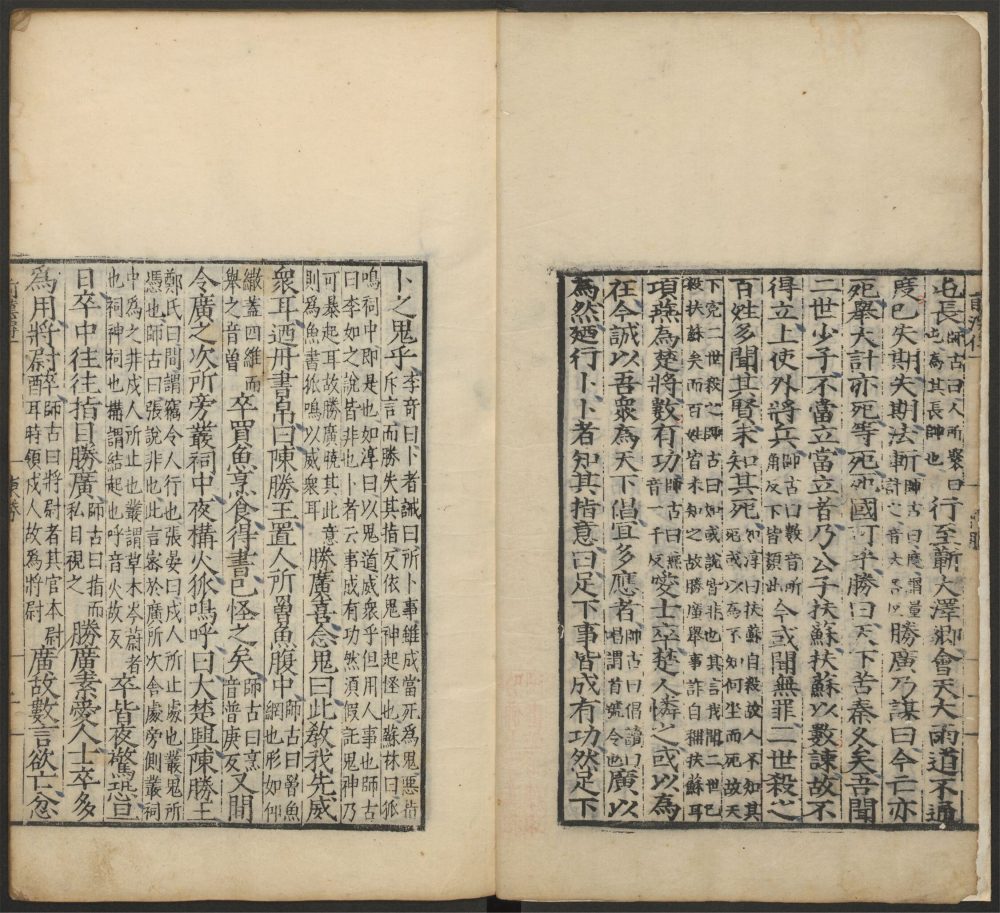 屯長師古曰人所聚曰屯爲其長帥也行至蘄大澤鄉會天大雨道不通
度已失期失期法斬師古曰度謂量計之音大各反勝廣乃謀曰今亡亦
死舉大計亦死等死死國可乎勝曰天下苦秦久矣吾聞
二世少子不當立當立者乃公子扶蘇扶蘇以數諫故不
得立上使外將兵師古曰數音所角反下皆類此今或聞無罪二世殺之
百姓多聞其賢未知其死如淳曰扶蘇自殺故人不知其死或以爲不知何坐而死故天
下冤二世殺之師古曰如或說皆非也其言我聞二世已
殺扶蘇矣而百姓皆未知之故勝廣舉事詐自稱扶蘇耳
項燕爲楚將數有功師古曰燕音一千反愛士卒楚人憐之或以爲
在今誠以吾衆爲天下倡宜多應者師古曰倡讀曰唱謂首號令也廣以
爲然廼行卜卜者知其指意曰足下事皆成有功然足下
卜之鬼乎李奇曰卜者誡曰所卜事雖成當死爲鬼惡指斥言而勝失其指反依鬼神起怪也蘇林曰狐
鳴祠中即是也如淳曰以鬼道威衆乎但用人事也師古
曰李如之說皆非也卜者云事成有功然須假託鬼神乃
可暴起耳故勝廣曉其此意
則爲魚書狐鳴以威衆耳勝廣喜念鬼曰此敎我先威
衆耳廼丹書帛曰陳勝王置人所罾魚腹中師古曰罾魚網也形如仰
繖蓋四維而舉之音曾卒買魚烹食得書已怪之矣師古曰烹音普庚反又間
令廣之次所旁叢祠中夜構火狐鳴呼曰大楚興陳勝王
鄭氏曰間謂竊令人行也張晏曰戍人所止處也叢鬼所
憑也師古曰張說非也此言密於廣所次舍處旁側叢祠
中爲之井戍人所止也叢謂草木岑蔚者
也祠神祠也構謂結起也呼音火故反卒皆夜驚恐旦
日卒中往往指目勝廣師古曰指而私目視之勝廣素愛人士卒多
爲用將尉師古曰將尉者其官本尉耳時領戍人故爲將尉廣故數言欲亡忿